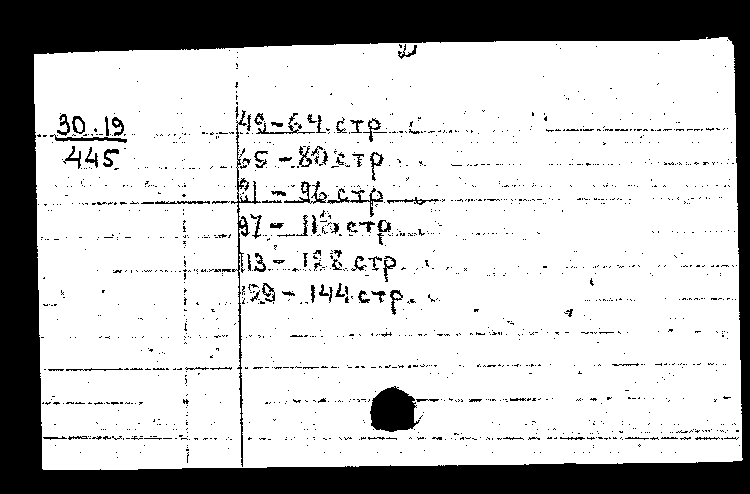 30.19
445
49-64 стр
65-80 стр
81-96 стр
97-112 стр
113-128 стр.
129-144 стр.